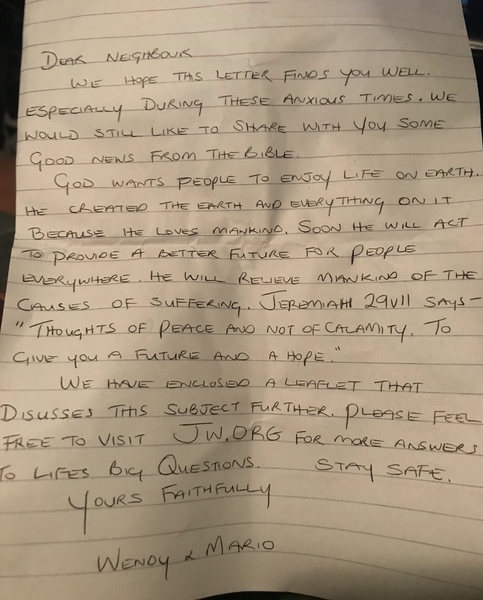 DEAR NEIGHBOUR
WE HOPE THIS LETTER FINDS YOU WELL.
ESPECIALLY DURING THESE ANXIOUS TIMES. WE
WOULD STILL LIKE TO SHARE WITH YOU SOME
GOOD NEWS FROM THE BIBLE.
GOD WANTS PEOPLE TO ENJOY LIFE ON EARTH.
HE CREATED THE EARTH AND EVERYTHING ON IT
BECAUSE HE LOVES MANKIND. SOON HE WILL ACT
TO PROVIDE A BETTER FUTURE FOR PEOPLE
EVERYWHERE. HE WILL RELIEVE MANKIND OF THE
CAUSES OF SUFFERING. JEREMIAH 29V11 SAYS-
"THOUGHTS OF PEACE AND NOT OF CALAMITY. TO
GIVE YOU A FUTURE AND A HOPE."
WE HAVE ENCLOSED A LEAFLET THAT
DISUSSES THIS SUBJECT FURTHER. PLEASE FEEL
FREE TO VISIT JW.ORG FOR MORE ANSWERS
TO LIFES BIG QUESTIONS. STAY SAFE.
YOURS FAITHFULLY
WENDY & MARIO